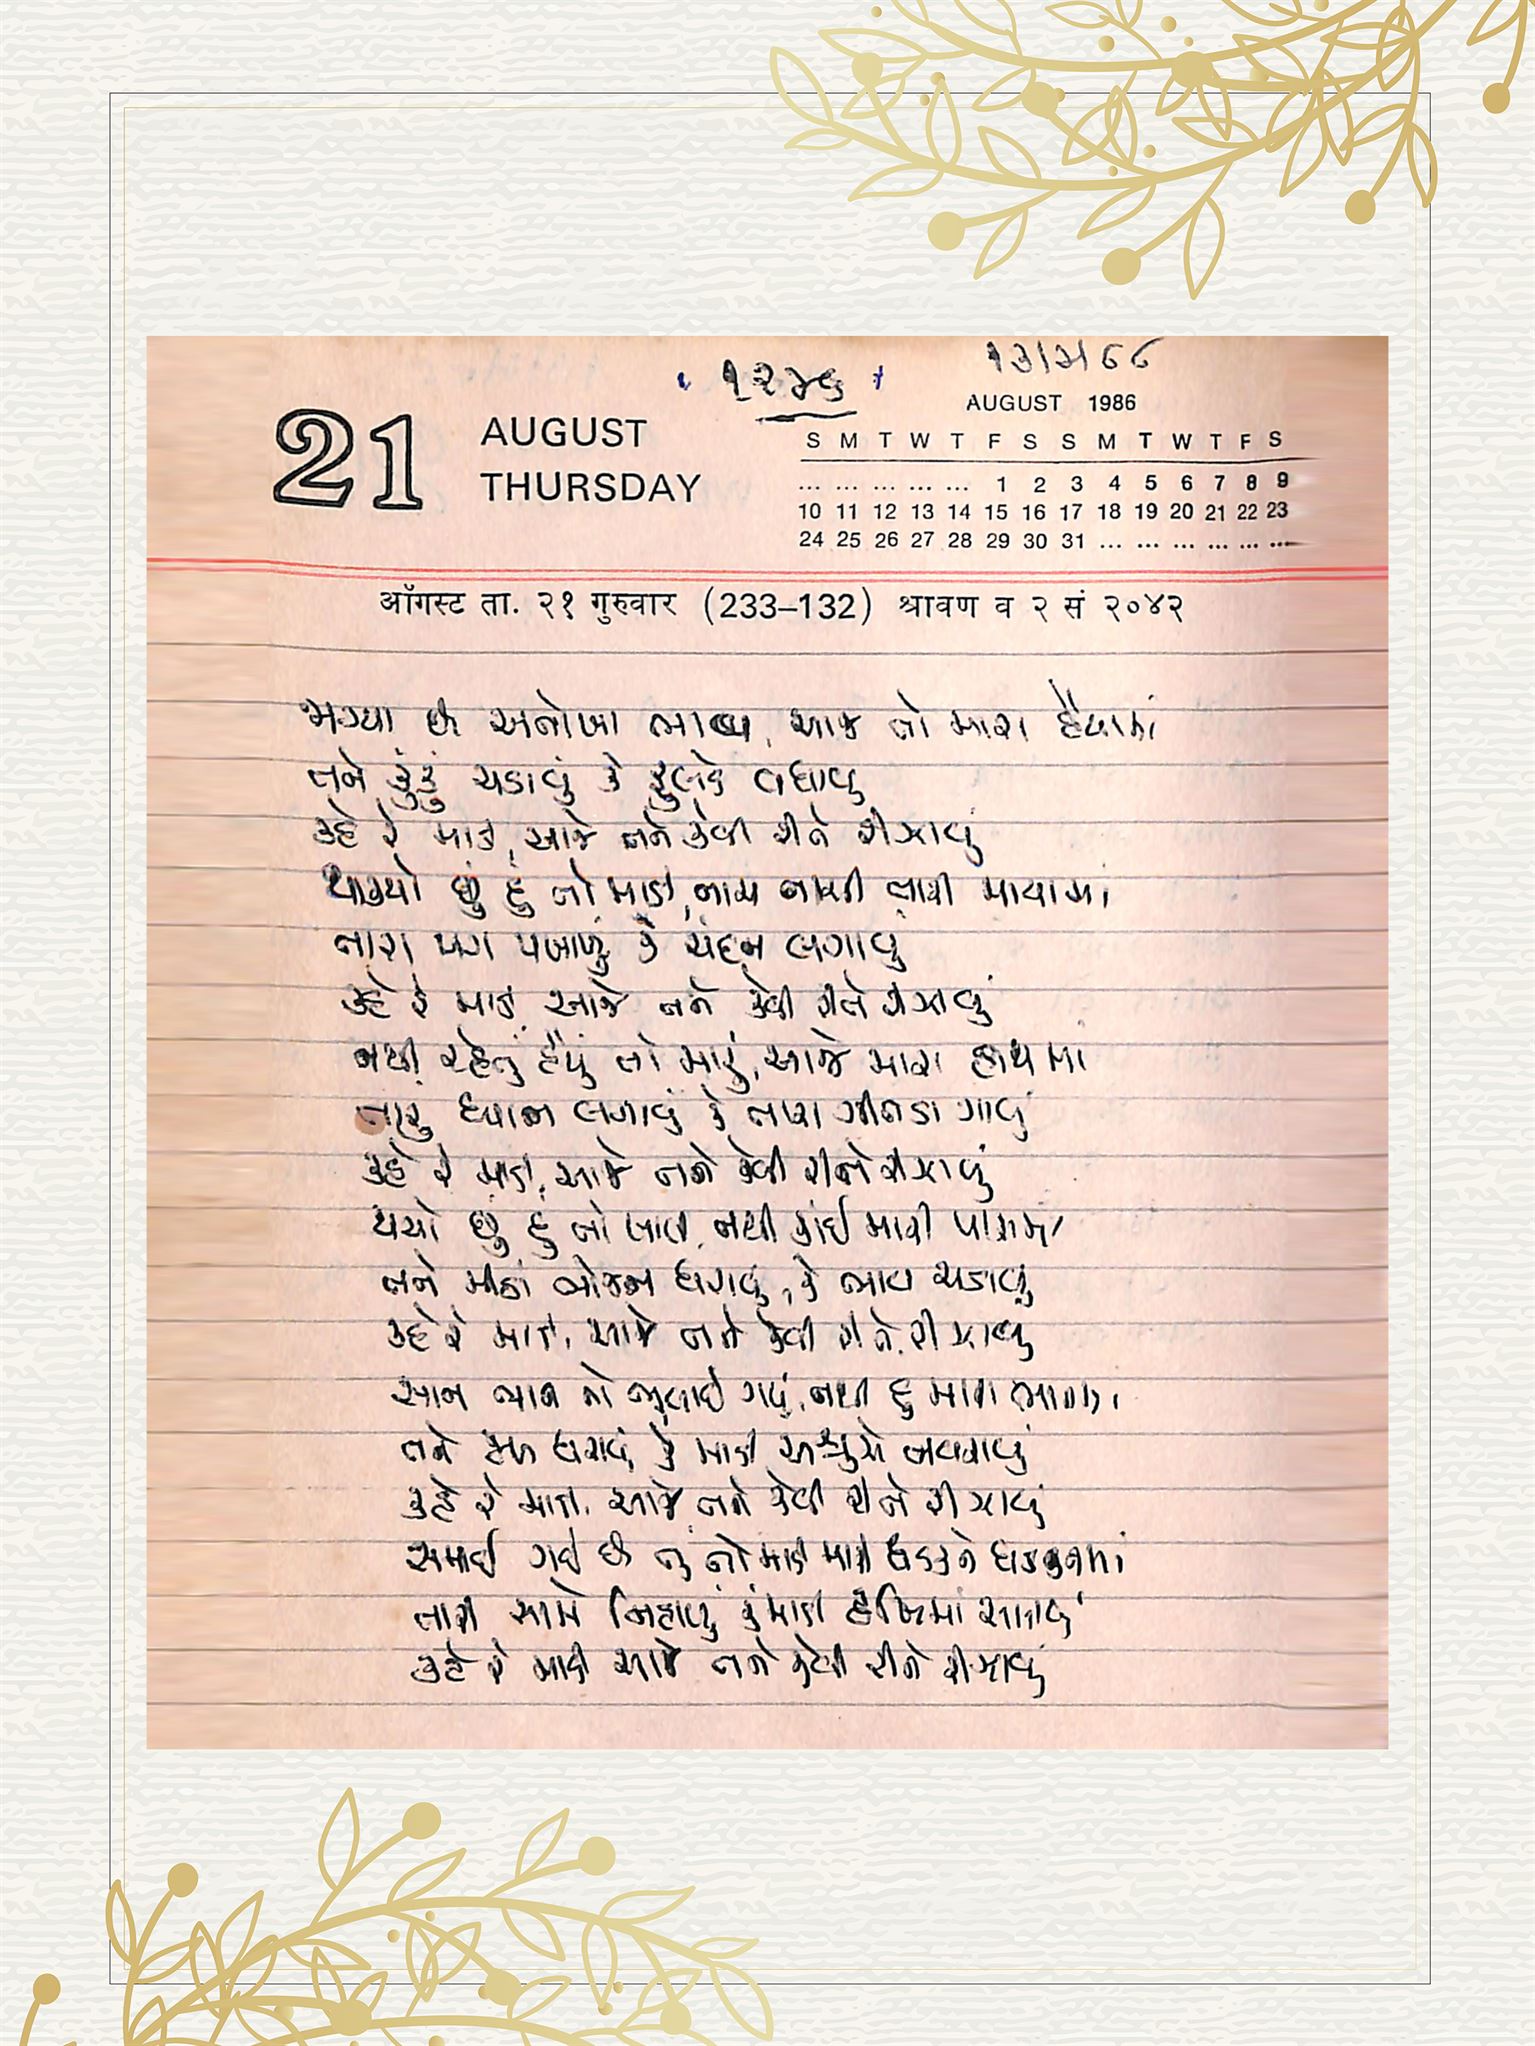 ૧૨૪૬
21
AUGUST
THURSDAY
AUGUST 1986
S M T W T F S S M T W T F S
... ... ... ... ... 1 2 3 4 5 6 7 8 9
10 11 12 13 14 15 16 17 18 19 20 21 22 23
24 25 26 27 28 29 30 31 ... ... ... ... ... ...
ऑगस्ट ता. २१ गुरुवार (233–132) श्रावण व २ सं २०४२
જાગ્યા છે અનોખા ભાવ, આજ તો મારા હૈયામાં
તને કુંકું ચડાવું કે ફુલડે વધાવું
કહે રે માડી, આજે તને કેવી રીતે રીઝાવું
થાક્યો છું હું તો માડી, નાચ નાચી તારી માયામાં
તારા પગ પખાળું કે ચંદન લગાવું
કહે રે માડી આજે તને કેવી રીતે રીઝાવું
નથી રહેતું હૈયું તો મારું, આજે મારા હાથમાં
તારુ ધ્યાન લગાવું કે તારા ગીતડા ગાવું
કહે રે માડી, આજે તને કેવી રીતે રીઝાવું
થયો છું હું તો ખાલી, નથી કાંઈ મારી પાસમાં
તને મીઠાં ભોજન ધરાવું, કે ભાવ ચડાવું
કહે રે માડી, આજે તને કેવી રીતે રીઝાવું
સાન ભાન તો ભુલાઈ ગયું, નથી હું મારા ભાનમાં
તને ધરાવું કે માડી અશ્રુએ નવરાવું
કહે રે માડી, આજે તને કેવી રીતે રીઝાવું
સમાઈ ગઈ છે તું તો માડી મારી ધડકને ધડકનમાં
તારી સામે નિહાળું કે માડી સમાવું
કહે રે માડી આજે તને કેવી રીતે રીઝાવું